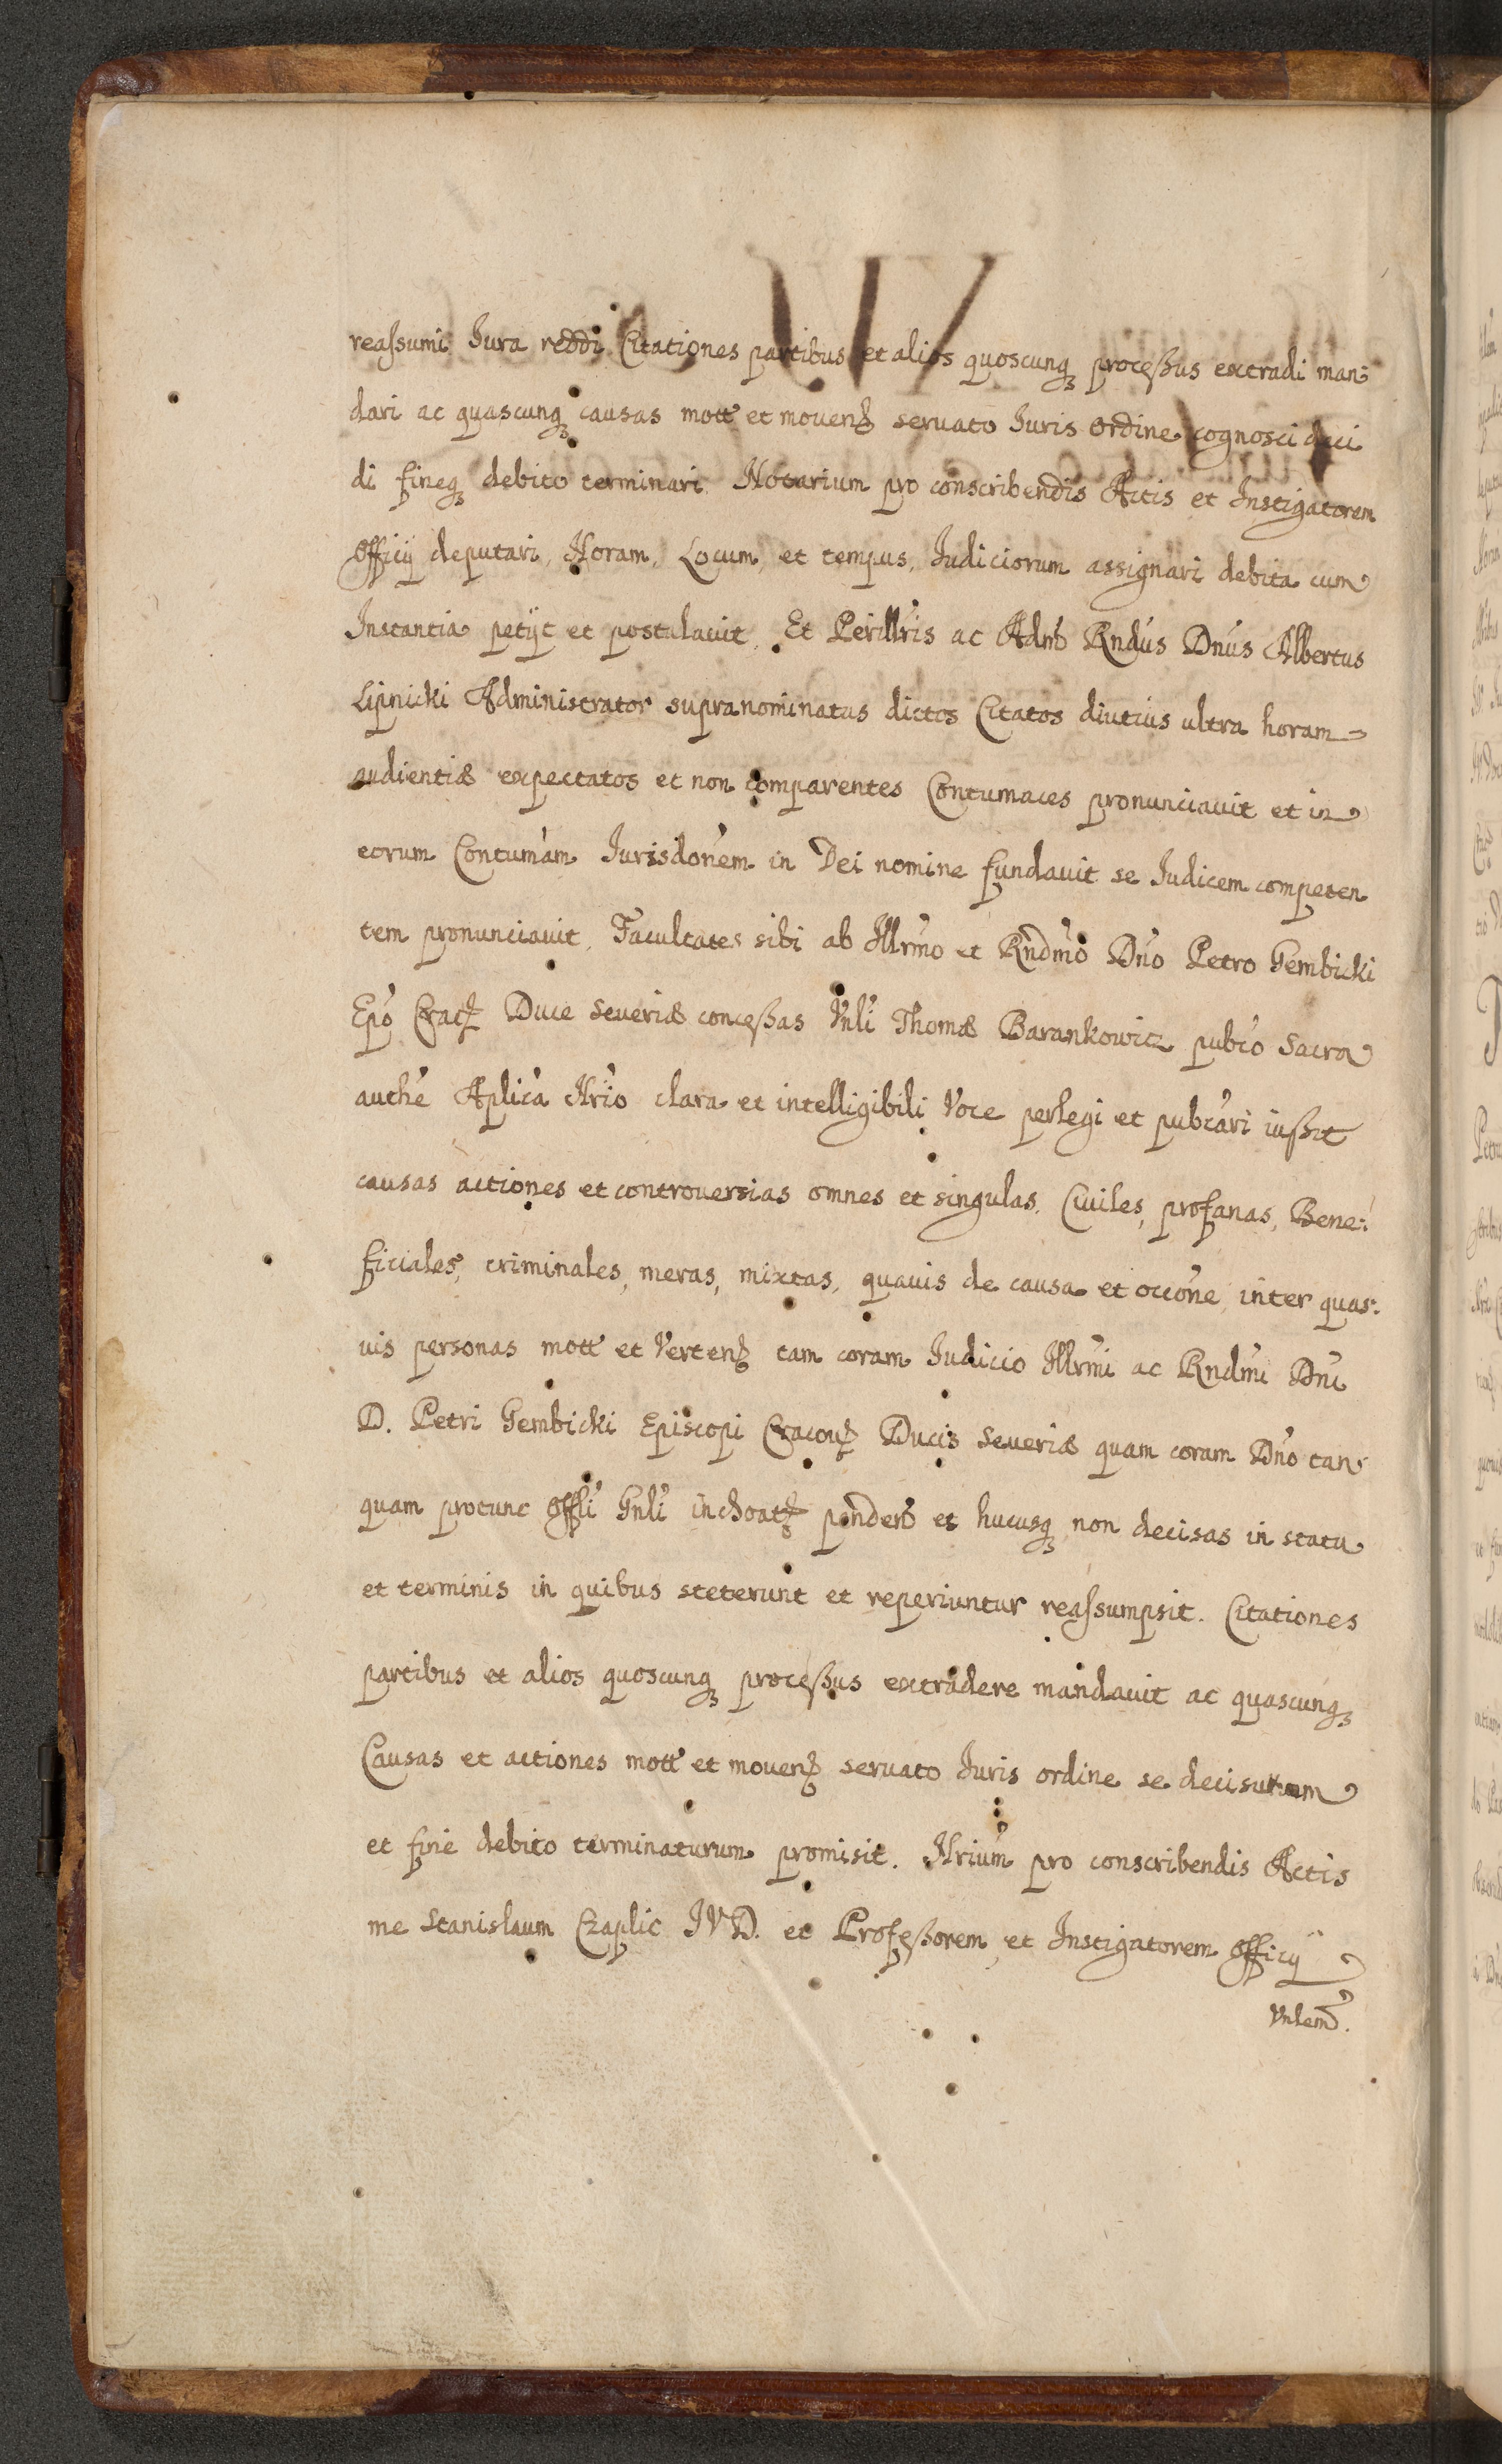 reassumi Iura reddi Citationes partibus et alios quoscunq processus extradi man:
dari ac quascunq causas mott et mouen servato Iuris ordine cognosci deci
di fineq debito terminari. Notarium pro conscribendis Actis et Instigatorem
Officÿ deputari, Horam, Locum, et tempus, Iudiciorum assignari debita cum
Instantia petÿt et postulauit. Et Perillris ac Adm Rndus Dnus Albertus
Lipnicki Administrator supranominatus dictos Citatos diutius ultra horam
audientiæ expectatos et non comparentes Contumaces pronunciauit et in
eorum Contumam Iurisdonem in Dei nomine fundauit se Iudicem competen
tem pronunciauit. Facultates sibi ab Illrmo et Rndmo Dno Petro Gembicki
Epo Crac Duce Seueriæ concessas Vnli Thomæ Barankowicz pubco Sacra
authe Aplica Nrio clara et intelligibili Voce perlegi et pubcari iussit
causas actiones et controuersias omnes et singulas, Ciuiles, profanas, Bene:
ficiales, criminales, meras, mixtas, quauis de causa et occone inter quas:
uis personas mott et Verten tam coram Iudicio Illrmi ac Rndmi Dni
D. Petri Gembicki Episcopi Cracou Ducis Seueriæ quam coram Dno tan
quam protunc Offli Gnli inchoat penden et hucusq non decisas in statu
et terminis in quibus steterunt et reperiuntur reassumpsit. Citationes
partibus et alios quoscunq processus extradere mandauit ac quascunq
Causas et actiones mott et mouen servato Iuris ordine se decisurum
et fine debito terminaturum promisit. Nrium pro conscribendis Actis
me Stanislaum Czaplic IVD. et Professorem et Instigatorem Officÿ
Vnlem.